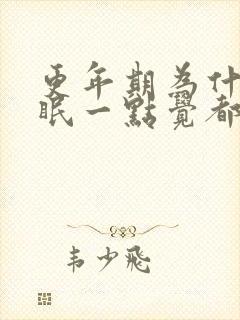 更年期為什
眠一點覺都
韦少飛